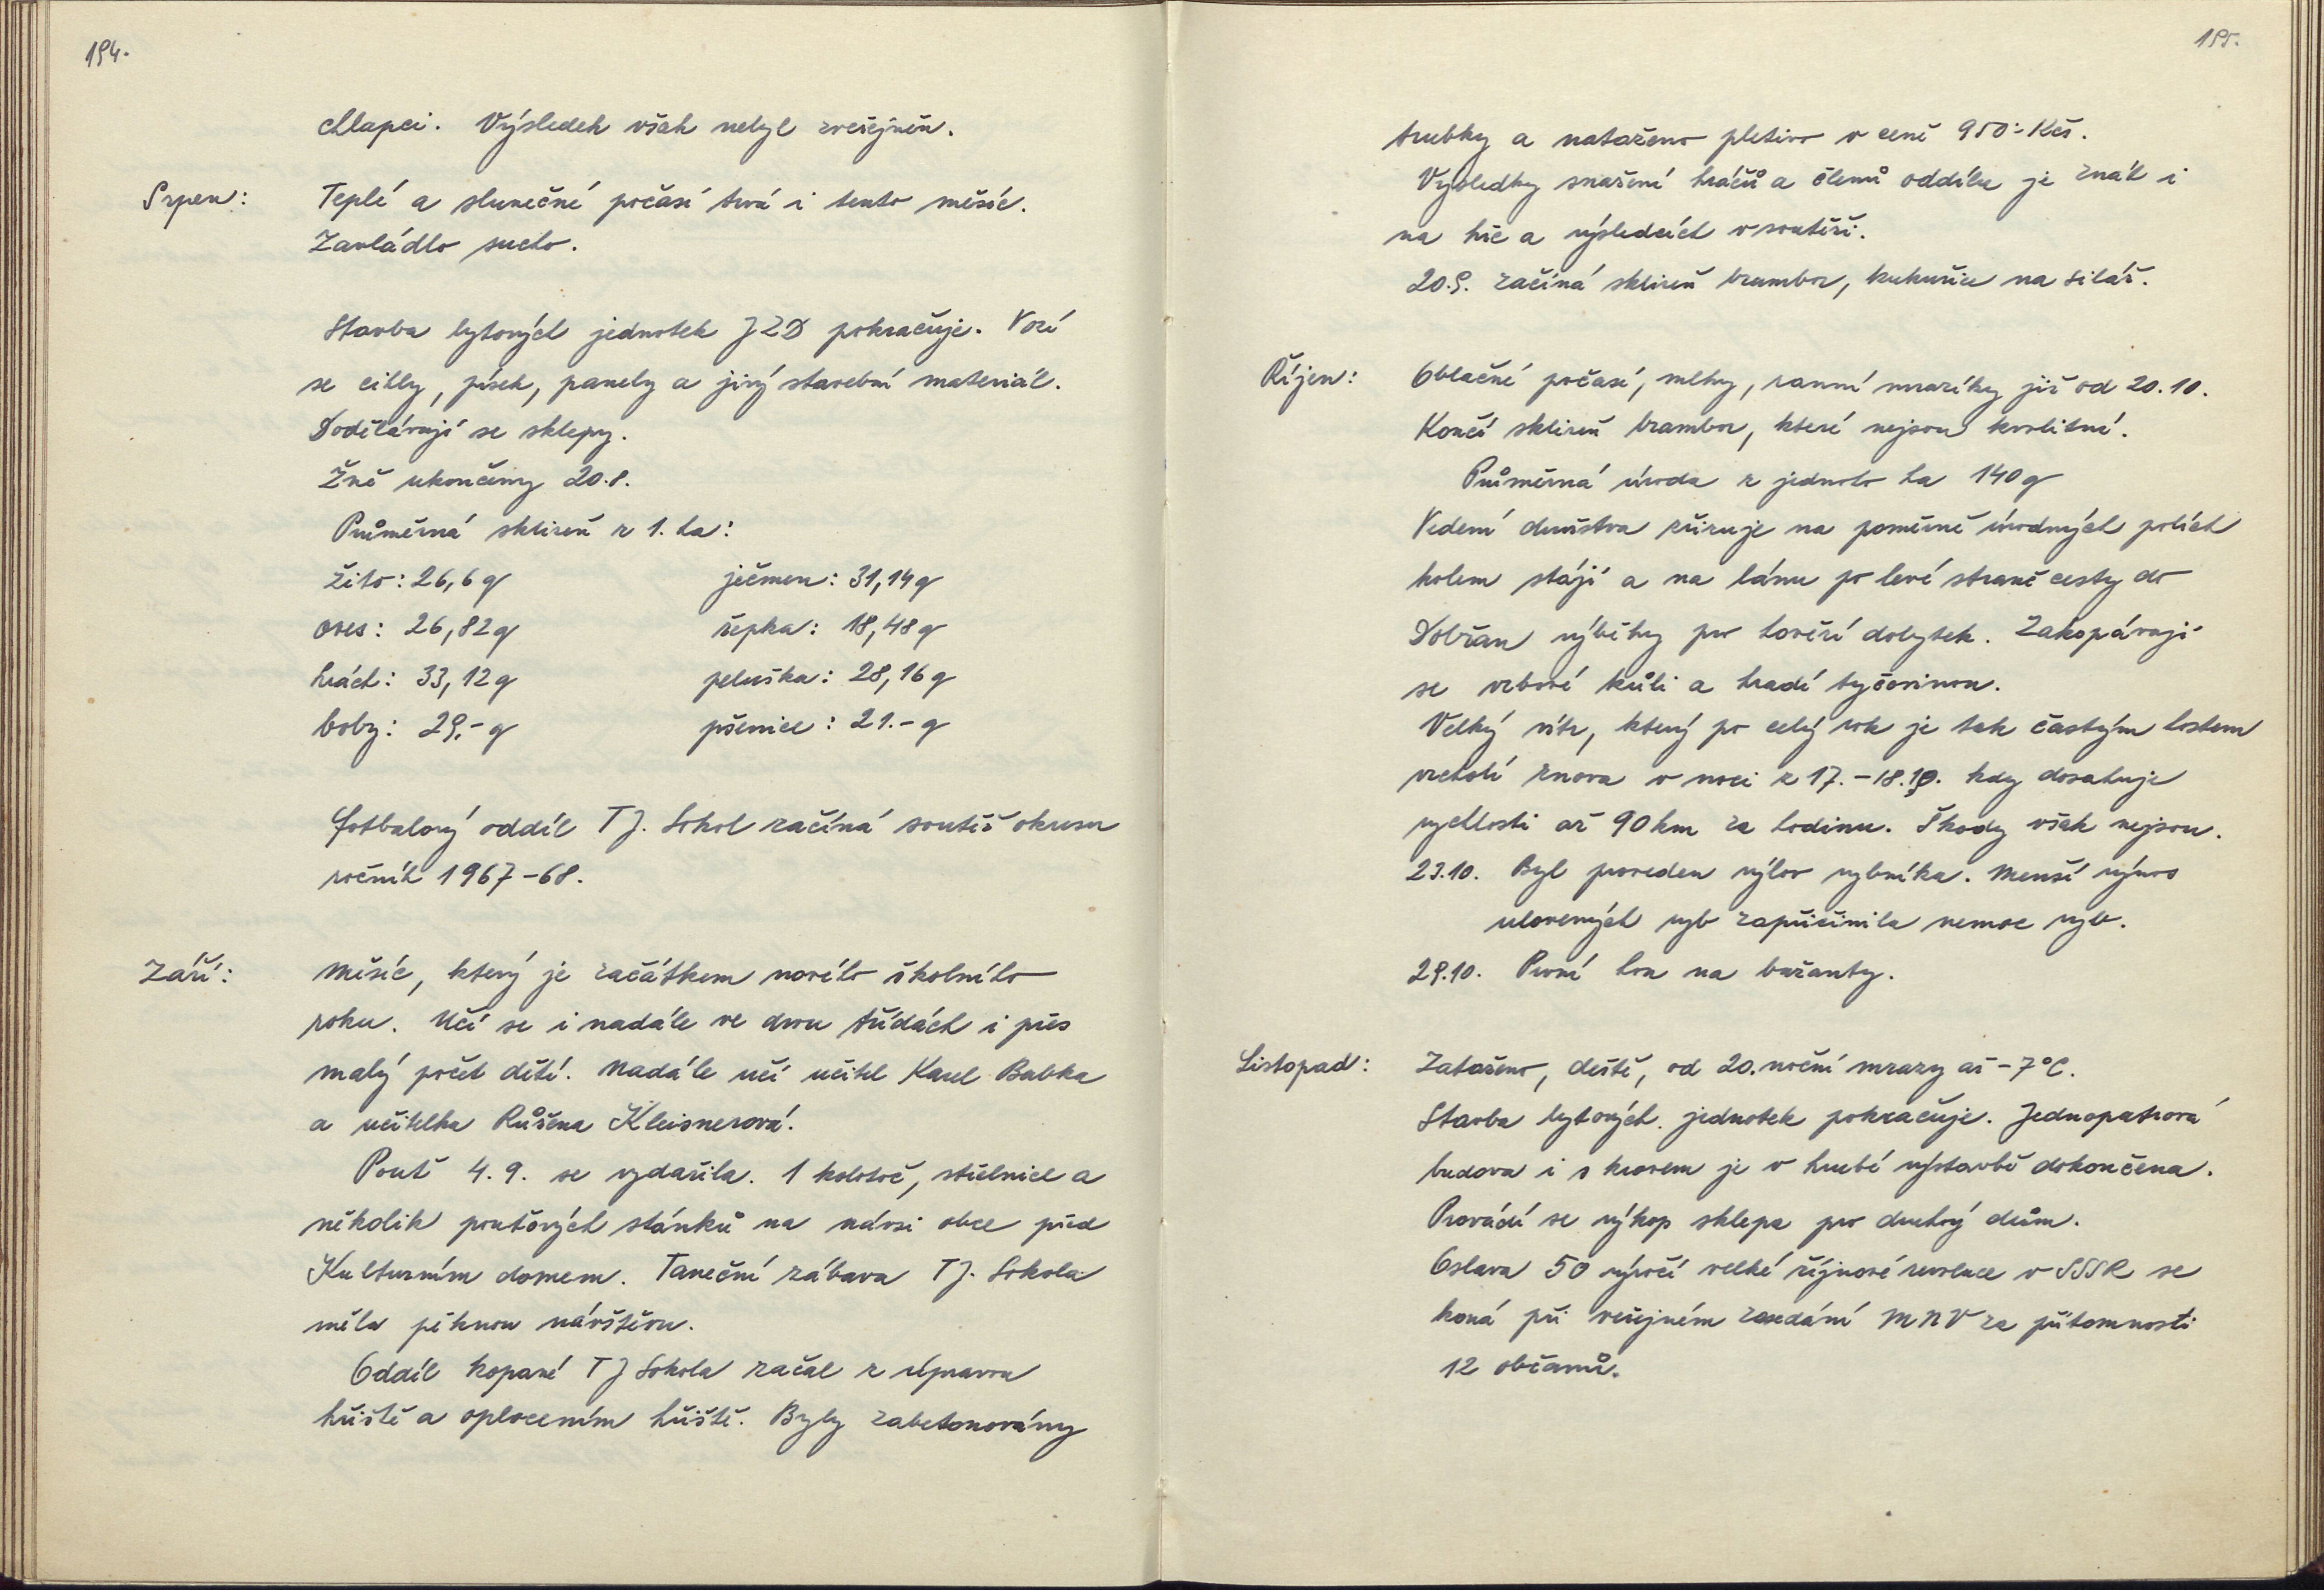 194.
chlapci. Výsledek však nebyl zveřejněn.
Srpen: Teplé a slunečné počasí trvá i tento měsíc.
Zavládlo sucho.
Stavba bytových jednotek JZD pokračuje. Vozí
se cihly, písek, panely a jiný stavební materiál.
Dodělávají se sklepy.
Žně ukončeny 20.8.
Průměrná sklizeň z 1. ha:
žito: 26,6 q ječmen: 31,14 q
oves: 26,82 q řepka: 18,48 q
hrách: 33,12 q peluška: 28,16 q
boby: 29,- q pšenice: 21.- q
fotbalový oddíl TJ. Sokol začíná soutěž okresu
ročník 1967-68.
Září: Měsíc, který je začátkem nového školního
roku. Učí se i nadále ve dvou třídách i přes
malý počet dětí. Nadále učí učitel Karel Babka
a učitelka Růžena Kleisnerová.
Pouť 4.9. se vydařila. 1 kolotoč, střelnice a
několik pouťových stánků na návsi obce před
Kulturním domem. Taneční zábava TJ. Sokola
měla pěknou návštěvu.
Oddíl kopané TJ Sokola začal z úpravou
hřiště a oplocením hřiště. Byly zabetonovány
195.
trubky a nataženo pletivo v ceně 950.- Kčs.
Výsledky snažení hráčů a členů oddílu je znát i
na hře a výsledcích v soutěži.
20.9. začíná sklizeň brambor, kukuřice na siláž.
Říjen: Oblačné počasí, mlhy, ranní mrazíky již od 20.10.
Končí sklizeň brambor, které nejsou kvalitní.
Průměrná úroda z jednoho ha 140 q
Vedení družstva zřizuje na poměrně úrodných polích
kolem stájí a na lánu po levé straně cesty do
Dobřan výběhy pro hovězí dobytek. Zakopávají
se vrbové kůli a hradí tyčovinou.
Velký vítr, který po celý rok je tak častým hostem
vrcholí znova v noci z 17.-18.10. kdy dosahuje
rychlosti až 90 km za hodinu. Škody však nejsou.
23.10. Byl proveden výlov rybníka. Menší výnos
ulovených ryb zapříčinila nemoc ryb.
29.10. První hon na bažanty.
Listopad: Zataženo, deště, od 20. noční mrazy až -7°C.
Stavba bytových jednotek pokračuje. Jednopatrová
budova i s krovem je v hrubé výstavbě dokončena.
Provádí se výkop sklepa pro druhý dům.
Oslava 50 výročí velké říjnové revoluce v SSSR se
koná při veřejném zasedání MNV za přítomnosti
12 občanů.